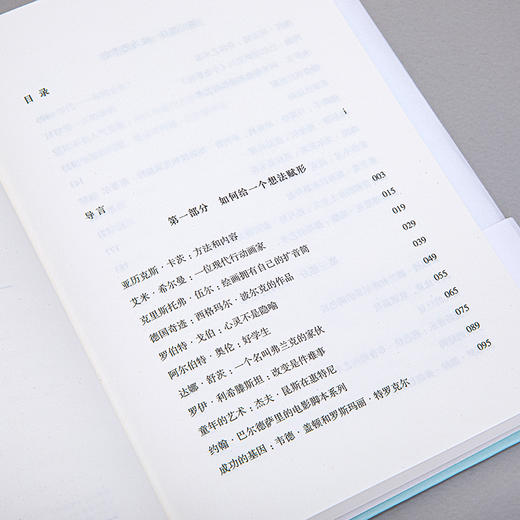 目 录
导言 i
第一部分 如何给一个想法赋形
亚历克斯·卡茨：方法和内容 003
艾米·希尔曼：一位现代行动画家 015
克里斯托弗·伍尔：绘画拥有自己的扩音筒 019
德国奇迹：西格玛尔·波尔克的作品 029
罗伯特·戈伯：心灵不是隐喻 039
阿尔伯特·奥伦：好学生 049
达娜·舒茨：一个名叫弗兰克的家伙 055
罗伊·利希滕斯坦：改变是件难事 065
童年的艺术：杰夫·昆斯在惠特尼 075
约翰·巴尔德萨里的电影脚本系列 089
成功的基因：韦德·盖顿和罗斯玛丽·特罗克尔 095